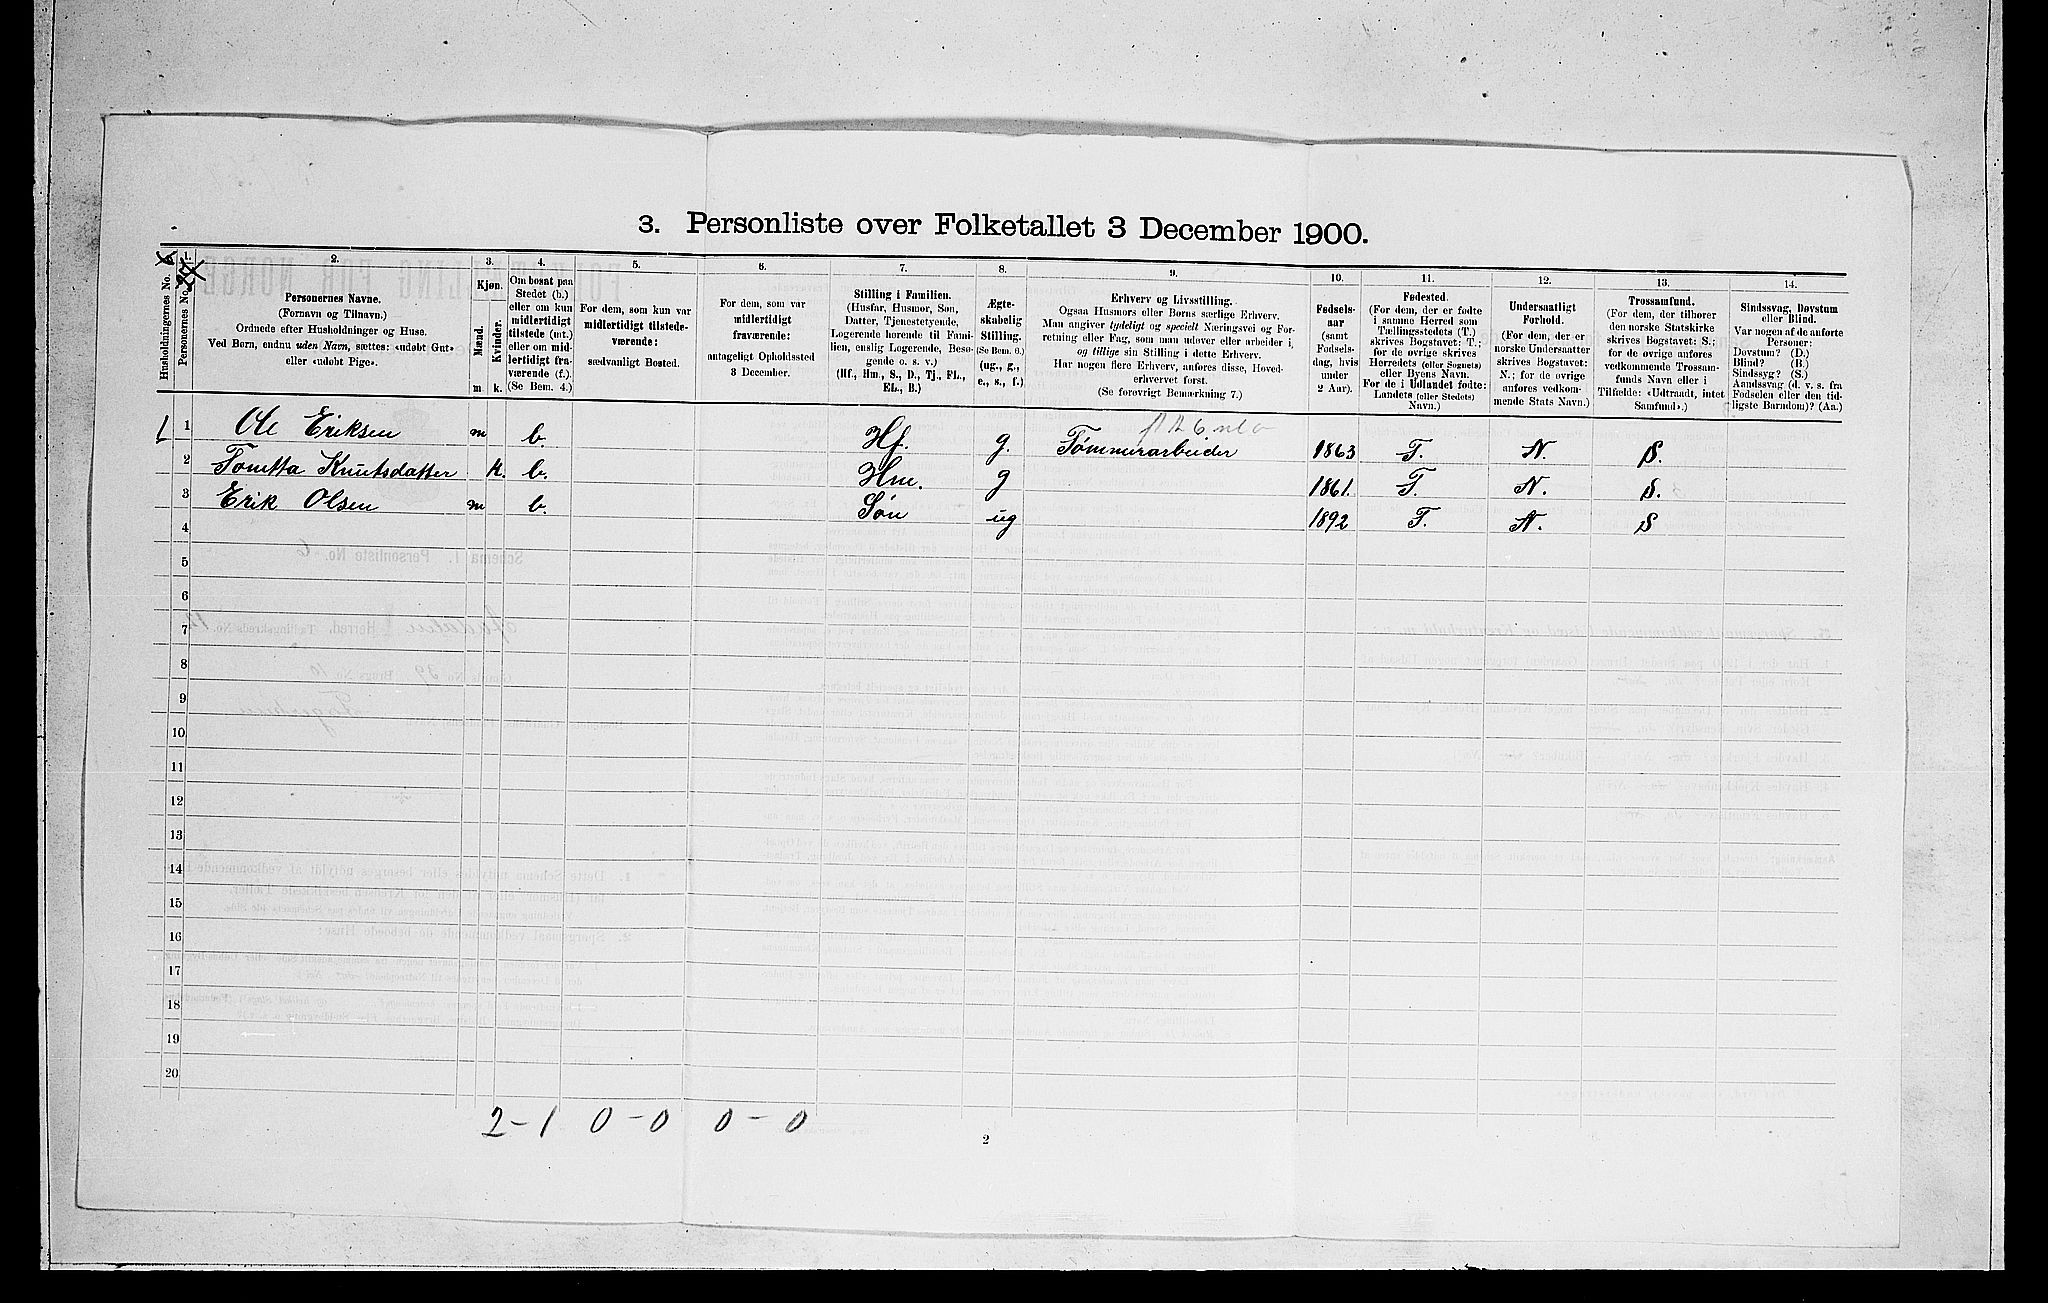 3. Personliste over Folketallet 3 December 1900.
1. 2. 3. 4. 5. 6. 7. 8. 9. 10. 11. 12. 13. 14.
Husholdningernes No.
Personernes No.
Personernes Navne.
(Fornavn og Tilnavn.)
Ordnede efter Husholdninger og Huse.
Ved Børn, endnu uden Navn, sættes: «udøbt Gut»
eller «udøbt Pige».
Kjøn.
Mænd.
Kvinder.
m. k.
Om bosat paa
Stedet (b.)
eller om kun
midlertidigt
tilstede (mt.)
eller om mid-
lertidigt fra-
værende (f.).
(Se Bem. 4.)
For dem, som kun var
midlertidigt tilstede-
værende:
sædvanligt Bosted.
For dem, som var
midlertidigt
fraværende:
antageligt Opholdssted
3 December.
Stilling i Familien.
(Husfar, Husmor, Søn,
Datter, Tjenestetyende,
Logerende hørende til Fami-
lien, enslig Logerende, Besø-
gende o. s. v.)
(Hf., Hm., S., D., Tj., FL.,
EL., B.)
Ægte-
skabelig
Stilling.
(Se Bem. 6.)
(ug., g.,
e., s., f.)
Erhverv og Livsstilling.
Ogsaa Husmors eller Børns særlige Erhverv.
Man angiver tydeligt og specielt Næringsvei og For-
retning eller Fag, som man udøver eller arbeider i,
og tillige sin Stilling i dette Erhverv.
Har nogen flere Erhverv, anføres disse, Hoved-
erhvervet først.
(Se forøvrigt Bemærkning 7.)
Fødsels-
aar
(samt
Fødsels-
dag, hvis
under
2 Aar).
Fødested.
(For dem, der er fødte
i samme Herred som
Tællingsstedets (T.)
skrives Bogstavet: T.;
for de øvrige skrives
Herredets (eller Sognets)
eller Byens Navn.
For de i Udlandet fødte:
Landets (eller Stedets)
Navn.)
Undersaatligt
Forhold.
(For dem, der er
norske Undersaatter
skrives Bogstavet:
N.; for de øvrige
anføres vedkom-
mende Stats Navn.)
Trossamfund.
(For dem, der tilhører
den norske Statskirke
skrives Bogstavet: S.;
for de øvrige anføres
vedkommende Trossam-
funds Navn eller i
Tilfælde: «Udtraadt, intet
Samfund».)
Sindssvag, Døvstum
eller Blind.
Var nogen af de anførte
Personer:
Døvstum? (D.)
Blind? (B.)
Sindssyg? (S.)
Aandssvag (d. v. s. fra
Fødselen eller den tid-
ligste Barndom)? (Aa.)
1 1 Ole Eriksen m b. Hf. g. Tømmerarbeider 1863 T. N. S.
2 Tonetta Knutsdatter k. b. Hm. g 1861. T. N. S.
3 Erik Olsen m b. Søn ug 1892 T. N. S
4
5
6
7
8
9
10
11
12
13
14
15
16
17
18
19
20
2-1 0-0 0-0
2